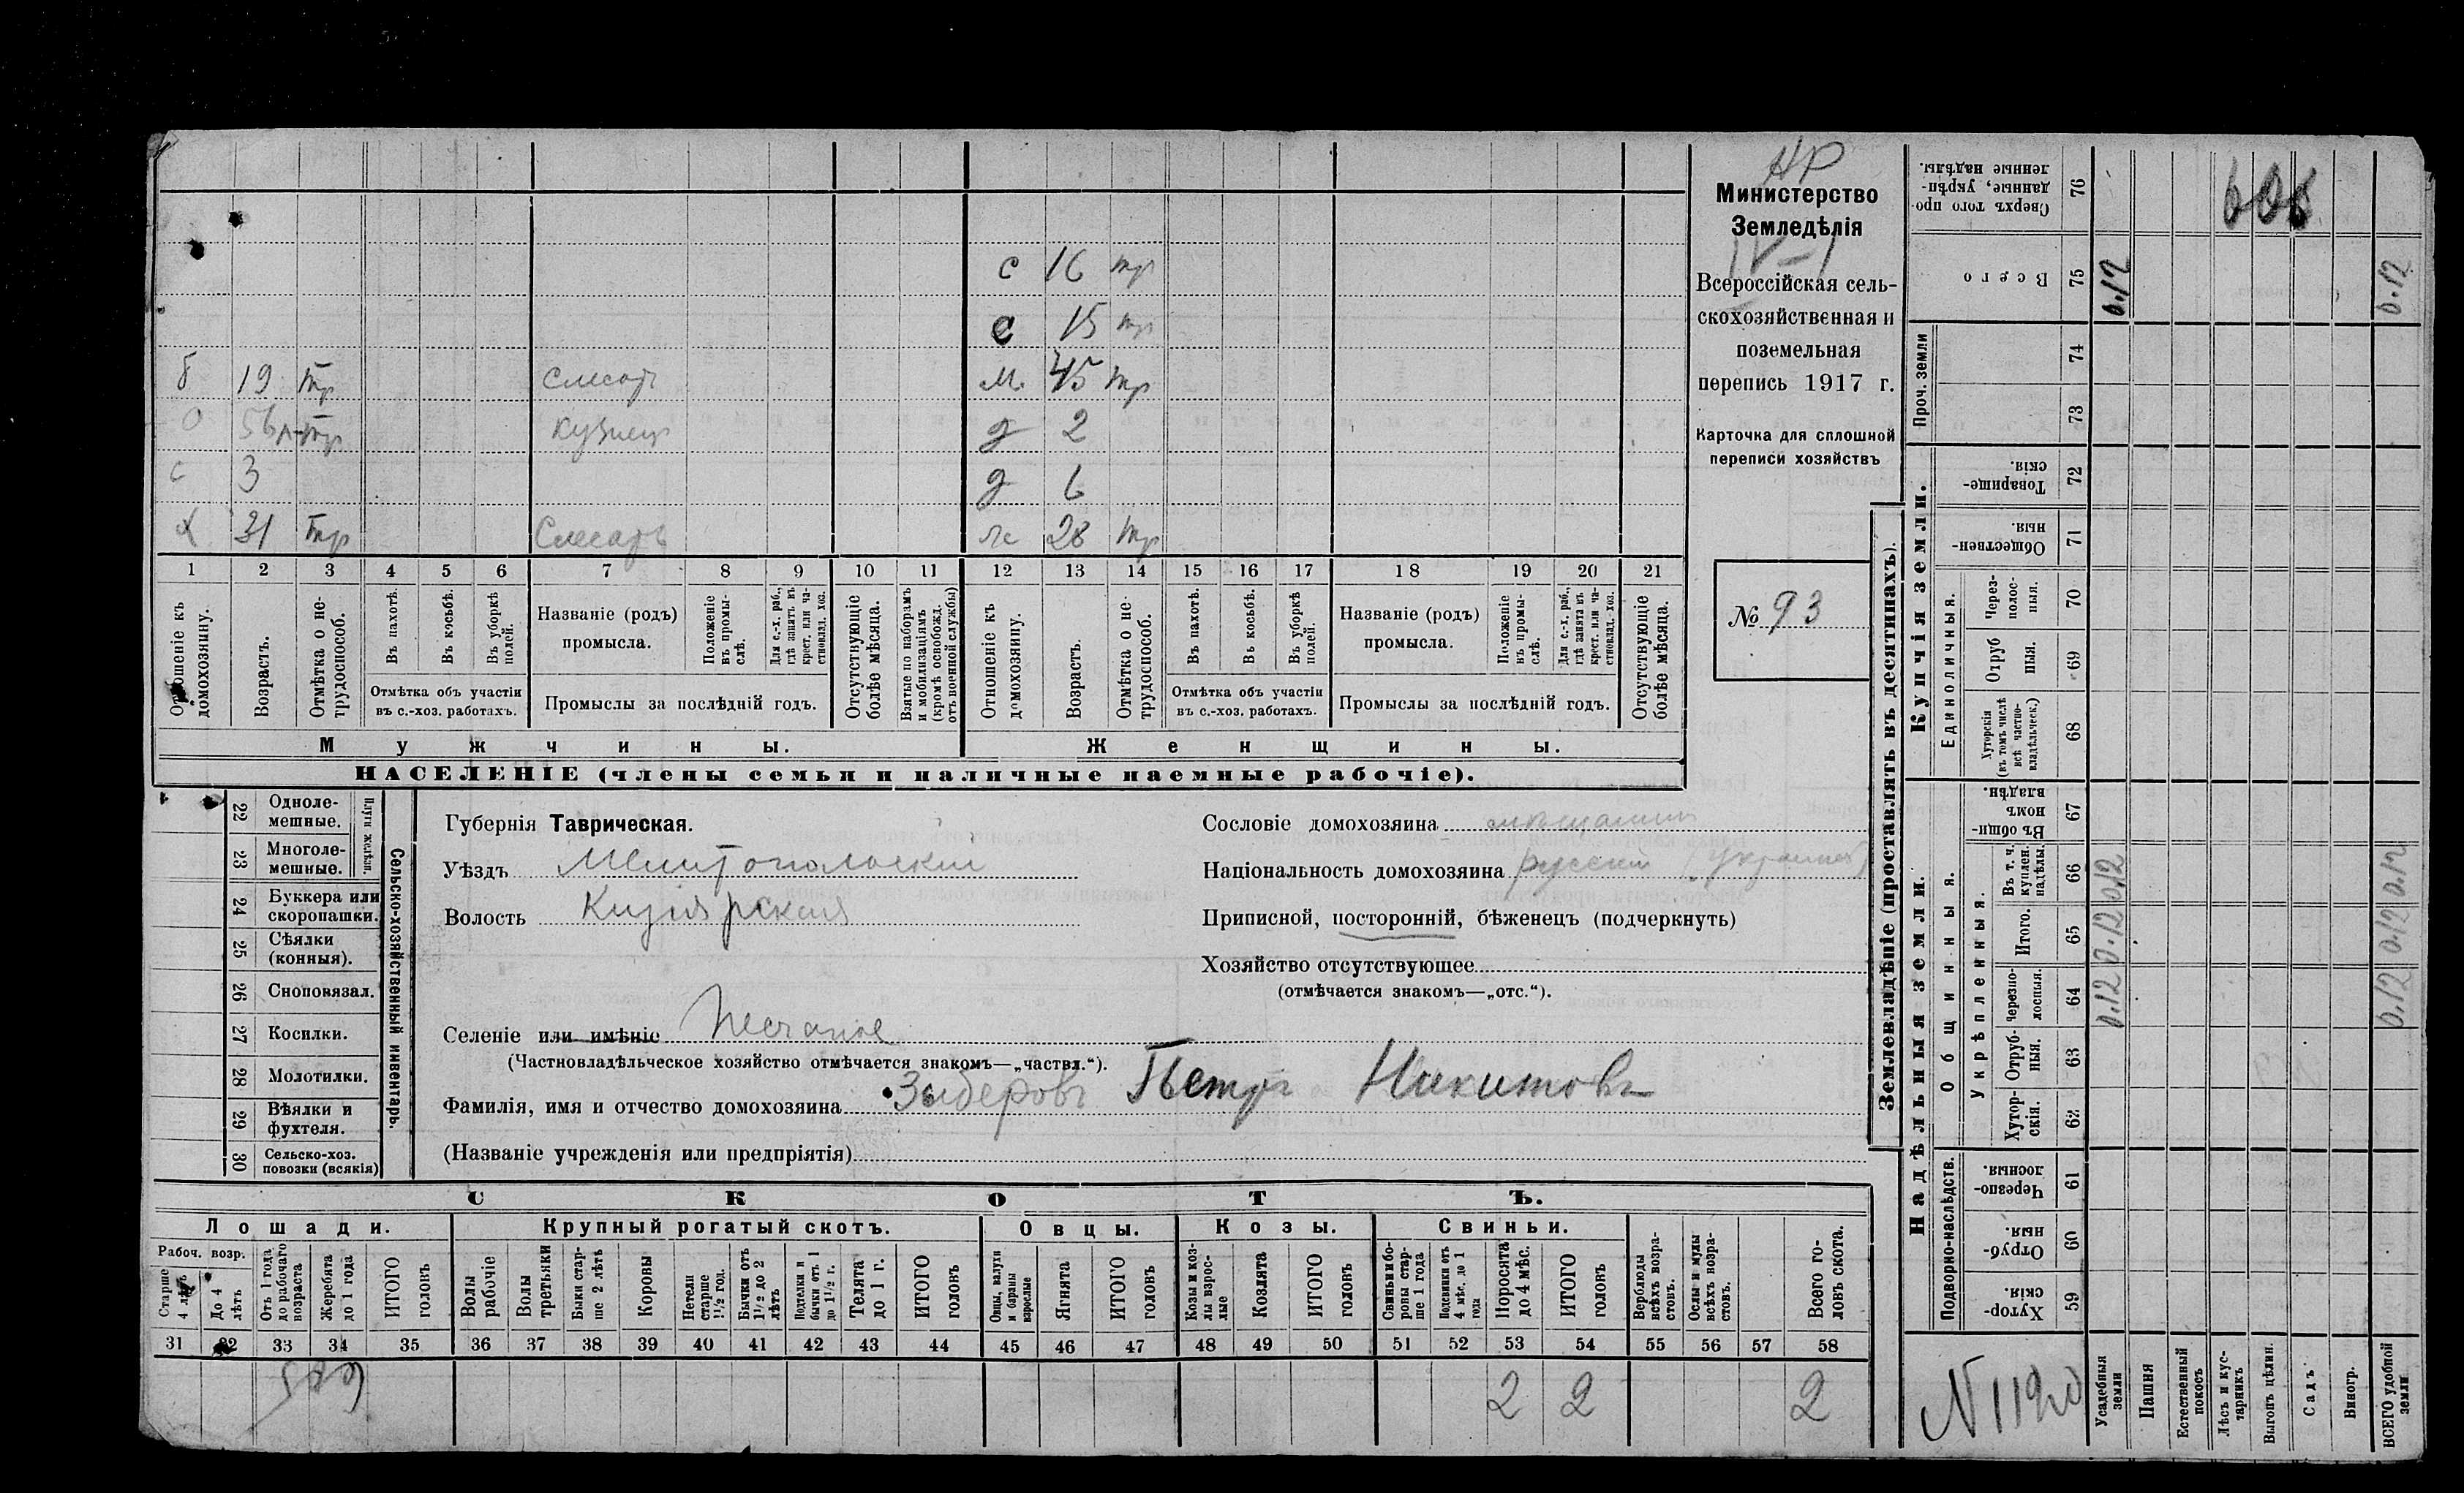 НР
Министерство
Земледѣлія
IV-1
Всероссійская сель-
скохозяйственная и
поземельная
перепись 1917 г.
Карточка для сплошной
переписи хозяйствъ
№ 93
с 16 тр
с 15 тр
б 19 тр слесарь м. 45 тр
о 56 тр кузнец д 2
с 3 д 6
х 31 тр Слесарь ж 28 тр
1 2 3 4 5 6 7 8 9 10 11 12 13 14 15 16 17 18 19 20 21
Отношеніе къ домохозяину.
Возрастъ.
Отмѣтка о не-трудоспособ.
Въ пахотѣ.
Въ косьбѣ.
Въ уборкѣ полей.
Отмѣтка объ участіи
въ с.-хоз. работахъ.
Названіе (родъ)
промысла.
Положеніе въ промы-слѣ.
Для с.-х. раб., гдѣ занятъ въ крест. или ча-стновлад. хоз.
Промыслы за послѣдній годъ.
Отсутствующіе болѣе мѣсяца.
Взятые по наборамъ и мобилизаціямъ (кромѣ освобожд. отъ военной службы)
Отношеніе къ домохозяину.
Возрастъ.
Отмѣтка о не-трудоспособ.
Въ пахотѣ.
Въ косьбѣ.
Въ уборкѣ полей.
Отмѣтка объ участіи
въ с.-хоз. работахъ.
Названіе (родъ)
промысла.
Положеніе въ промы-слѣ.
Для с.-х. раб., гдѣ занятъ въ крест. или ча-стновлад. хоз.
Промыслы за послѣдній годъ.
Отсутствующіе болѣе мѣсяца.
Мужчины. Женщины.
НАСЕЛЕНІЕ (члены семьи и наличные наемные рабочіе).
Сельско-хозяйственный инвентарь.
Плуги желѣзн.
22 Одноле-мешные.
23 Многоле-мешные.
24 Буккера или скоропашки.
25 Сѣялки (конныя).
26 Сноповязал.
27 Косилки.
28 Молотилки.
29 Вѣялки и фухтеля.
30 Сельско-хоз. повозки (всякія)
Губернія Таврическая.
Уѣздъ Мелитопольскій
Волость Кизіярская
Селеніе или имѣніе Песчаное
(Частновладѣльческое хозяйство отмѣчается знакомъ—„частвл.“).
Фамилія, имя и отчество домохозяина Зыберовъ Петръ Никитовъ
(Названіе учрежденія или предпріятія)
Сословіе домохозяина мѣщанинъ
Національность домохозяина русскій (украинец)
Приписной, посторонній, бѣженецъ (подчеркнуть)
Хозяйство отсутствующее
(отмѣчается знакомъ—„отс.“).
СКОТЪ.
Лошади. Крупный рогатый скотъ. Овцы. Козы. Свиньи.
Рабоч. возр.
Старше 4 лѣтъ
До 4 лѣтъ
Отъ 1 года до рабочаго возраста
Жеребята до 1 года
ИТОГО головъ
Волы рабочіе
Волы третьяки
Быки стар-ше 2 лѣтъ
Коровы
Нетели старше 1½ год.
Бычки отъ 1½ до 2 лѣтъ
Подтелки и бычки отъ 1 до 1½ г.
Телята до 1 г.
ИТОГО головъ
Овцы, валухи и бараны взрослые
Ягнята
ИТОГО головъ
Козы и коз-лы взрос-лые
Козлята
ИТОГО головъ
Свиньи и бо-ровы стар-ше 1 года
Подсвинки отъ 4 мѣс. до 1 года
Поросята до 4 мѣс.
ИТОГО головъ
Верблюды всѣхъ возра-стовъ.
Ослы и мулы всѣхъ возра-стовъ.
Всего го-ловъ скота.
31 32 33 34 35 36 37 38 39 40 41 42 43 44 45 46 47 48 49 50 51 52 53 54 55 56 57 58
2 2 2
Землевладѣніе (проставлять въ десятинахъ).
Надѣльныя земли. Купчія земли. Проч. земли
Подворно-наслѣдств.
Общинныя.
Укрѣпленныя.
Единоличныя.
Хутор-скія. 59
Отруб-ныя. 60
Черезпо-лосныя 61
Хутор-скія. 62
Отруб-ныя. 63
Черезпо-лосныя. 64
Итого. 65
Въ т. ч. куплен. надѣлы. 66
Въ общи-номъ владѣн. 67
Хуторскія (въ томъ числѣ всѣ частно-владѣльческ.) 68
Отруб ныя. 69
Через-полос-ныя. 70
Обществен-ныя. 71
Товарище-скія. 72
73
74
Всего 75
Сверхъ того про данные, укрѣп-ленные надѣлы. 76
Усадебныя земли 0.12 0.12 0.12 0.12
Пашня
Естественный покосъ
Лѣсъ и кус-тарникъ
Выгонъ цѣлин.
Садъ
Виногр.
ВСЕГО удобной земли 0.12 0.12 0.12 0.12
N 1120